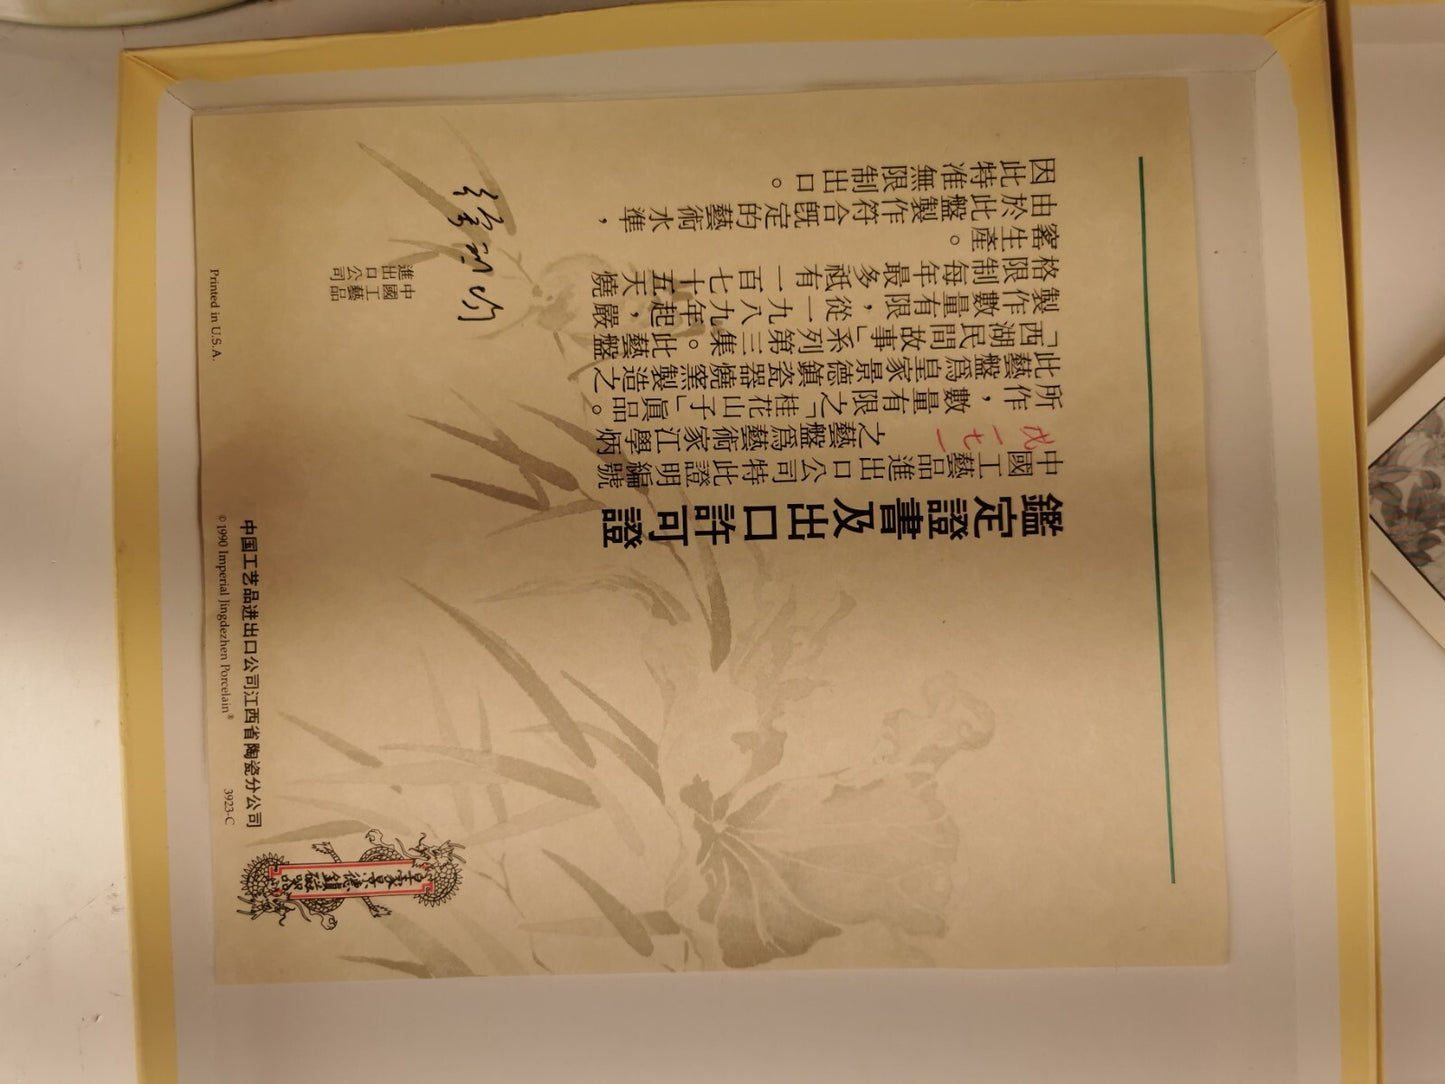 鑑定證書及出口許可證
中國工藝品進出口公司特此證明編號
戊一七一之藝盤爲藝術家江學炳
所作，數量有限之「桂花山子」眞品。
此藝盤爲皇家景德鎮瓷器燒窯製造之
「西湖民間故事」系列第三集。此藝盤
製作數量有限，從一九八九年起，嚴
格限制每年最多祇有一百七十五天燒
窰生產。
由於此盤製作符合旣定的藝術水準，
因此特准無限制出口。
中國工藝品
進出口公司
皇家景德鎮磁器
中国工艺品进出口公司江西省陶瓷分公司
© 1990 Imperial Jingdezhen Porcelain®
3923-C
Printed in U.S.A.